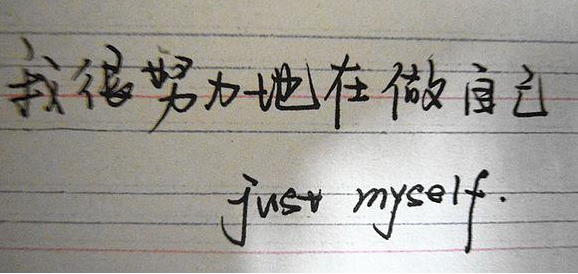 我很努力地在做自己
just myself.